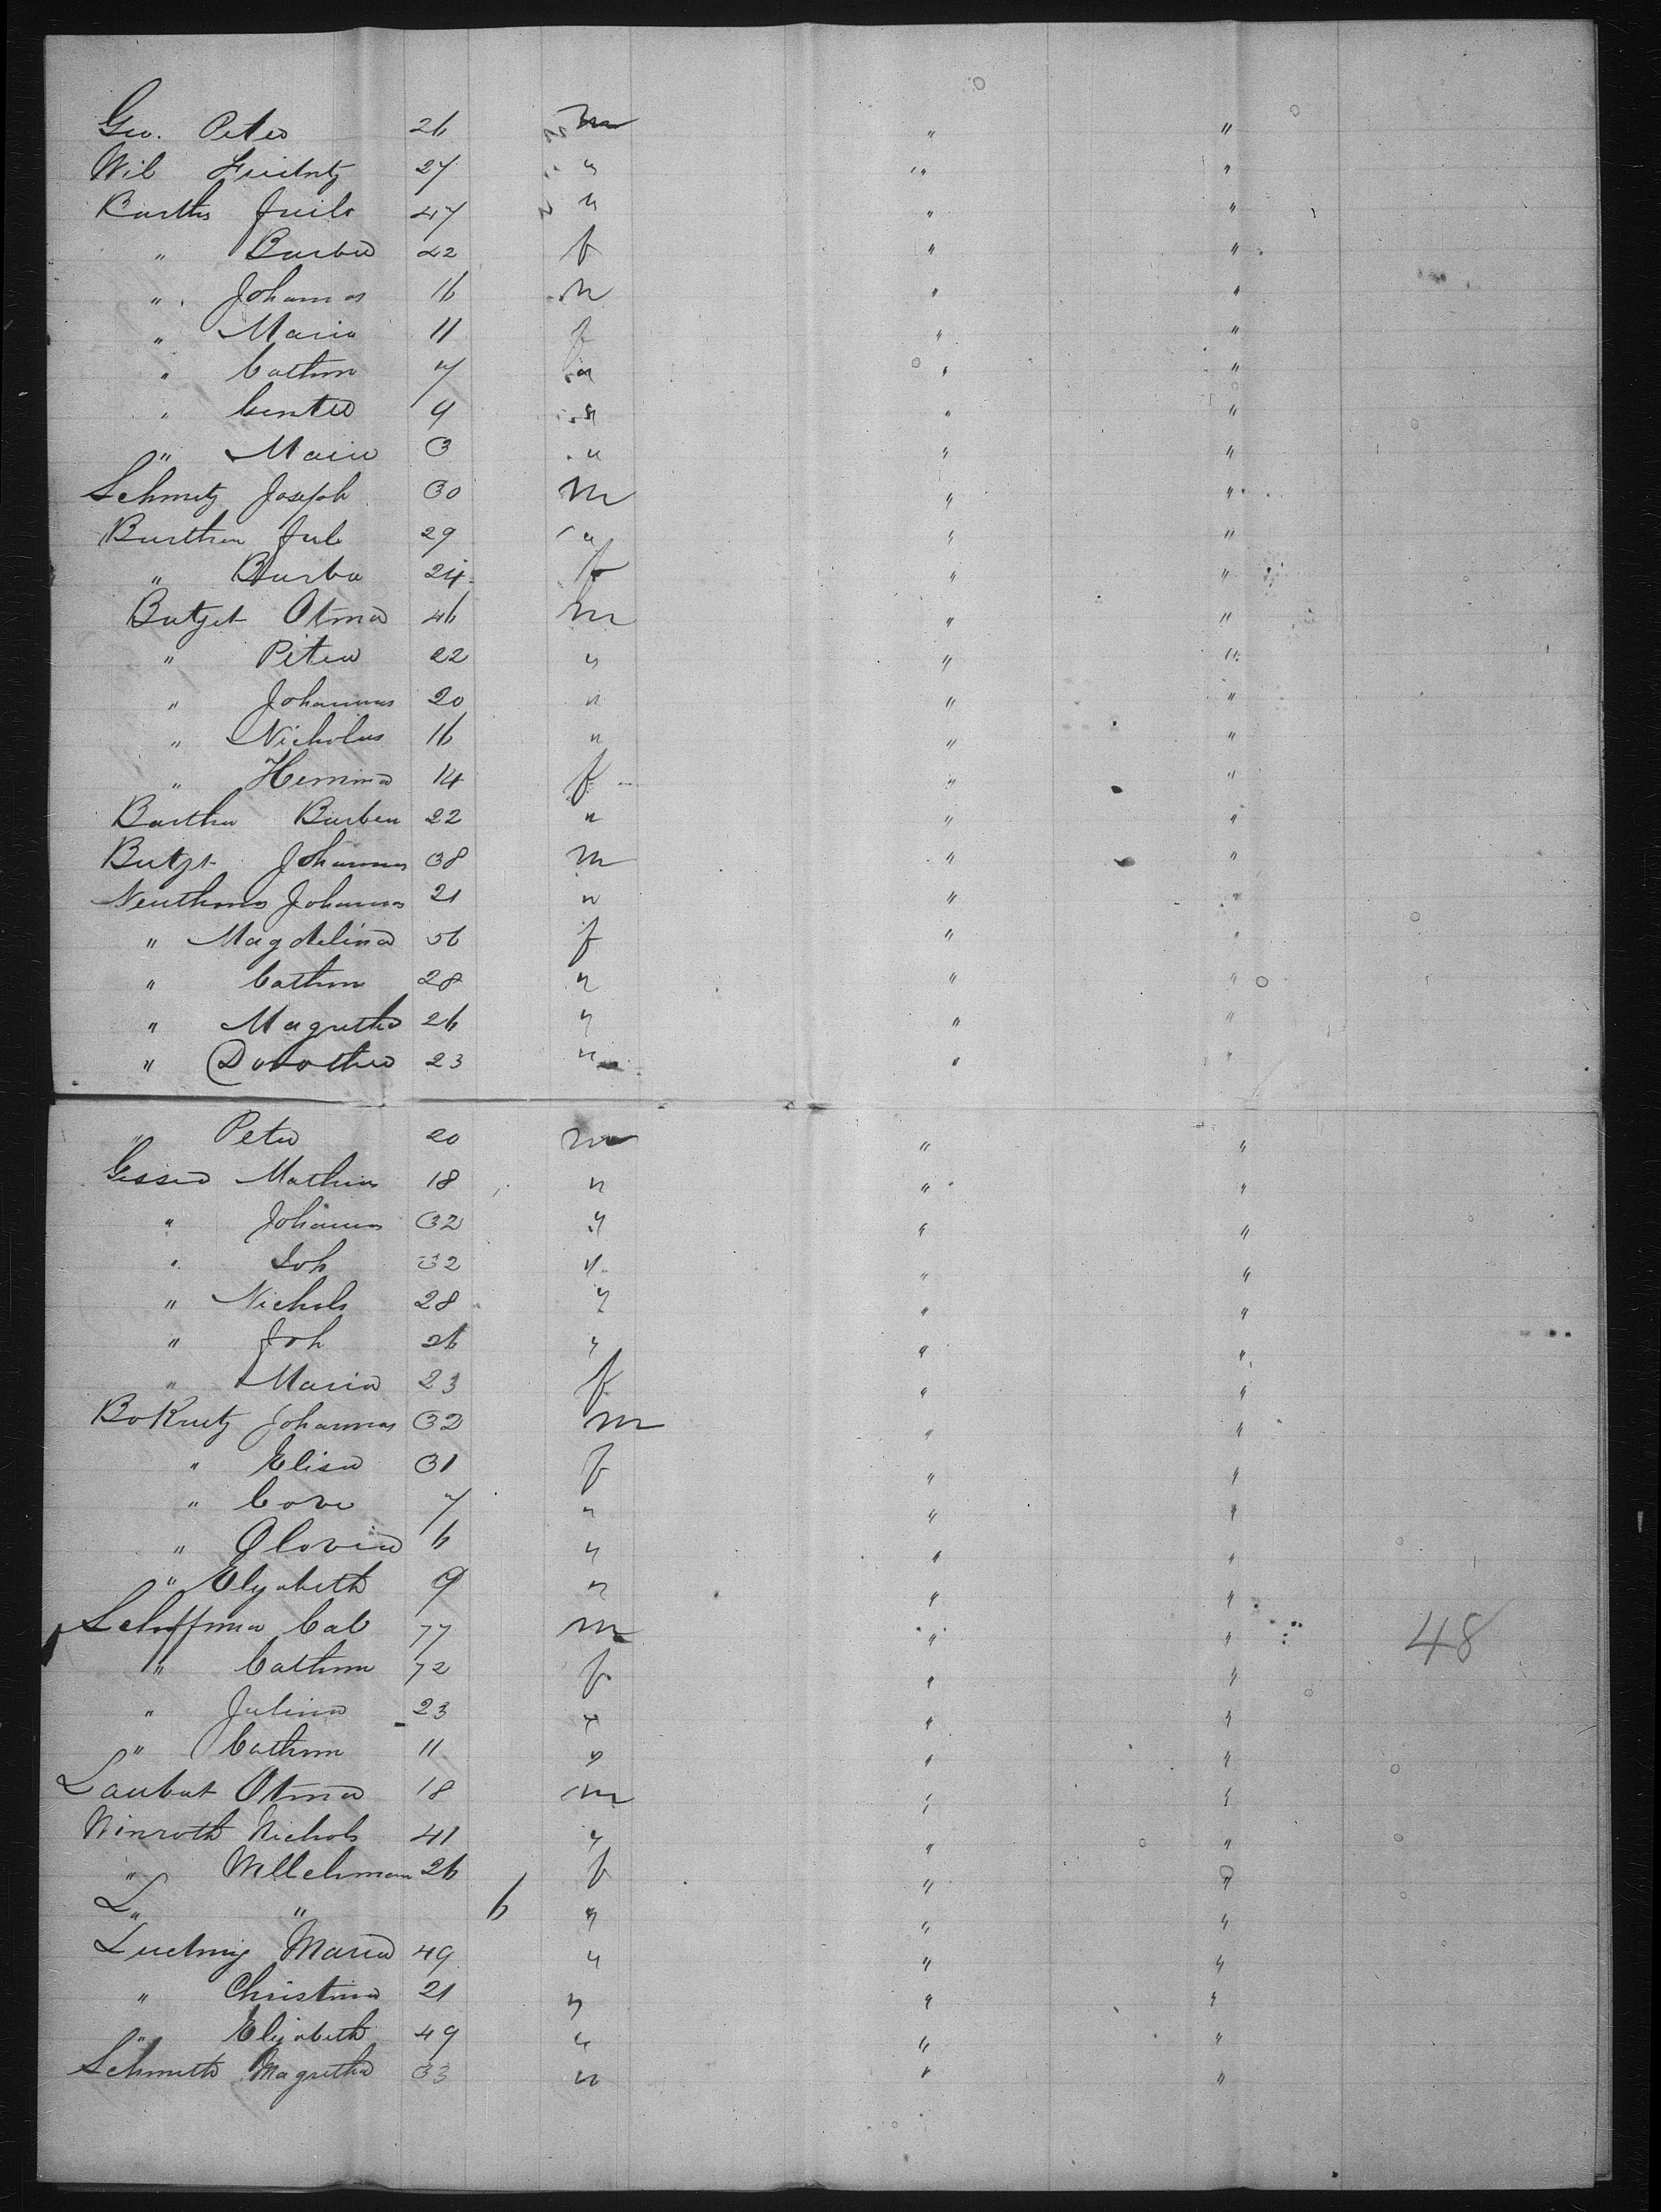 Geo. Peter 26 m " "
Wil 27 " " "
Barths 47 " " "
" Barba 42 f " "
" Johannes 16 m " "
" Maria 11 f " "
" Cathrn 7 " " "
" 9 " " "
" Maria 3 " " "
Schmitz Joseph 30 m " "
Barthen Jul 29 " " "
" Barba 24 f " "
Butzet Otma 46 m " "
" Peter 22 " " "
" Johannes 20 " " "
" Nicholus 16 " " "
" Hemina 14 f " "
Bartha Barben 22 " " "
Butzt Johannes 38 m " "
Neuthmo Johannes 21 " " "
" Magdelina 56 f " "
" Cathrn 28 " " "
" Magretha 26 " " "
" Dorothea 23 " " "
" Peter 20 m " "
Gessid Mathias 18 " " "
" Johannes 32 " " "
" Joh 32 " " "
" Nichols 28 " " "
" Joh 26 " " "
" Maria 23 f " "
BoKrutz Johannas 32 m " "
" Elisa 31 f " "
" 7 " " "
" Olovia 6 " " "
" Elyabeth 9 " " "
Schiffma Cal 77 m " " 48
" Cathrn 72 f " "
" Julina 23 " " "
" Cathrn 11 " " "
Laubat Otma 18 m " "
Winroth Nichols 41 " " "
" Willehman 26 f " "
L" " 6 " " "
Ludwig Maria 49 " " "
" Christina 21 " " "
" Elizabeth 49 " " "
Schmith Magretha 33 " " "